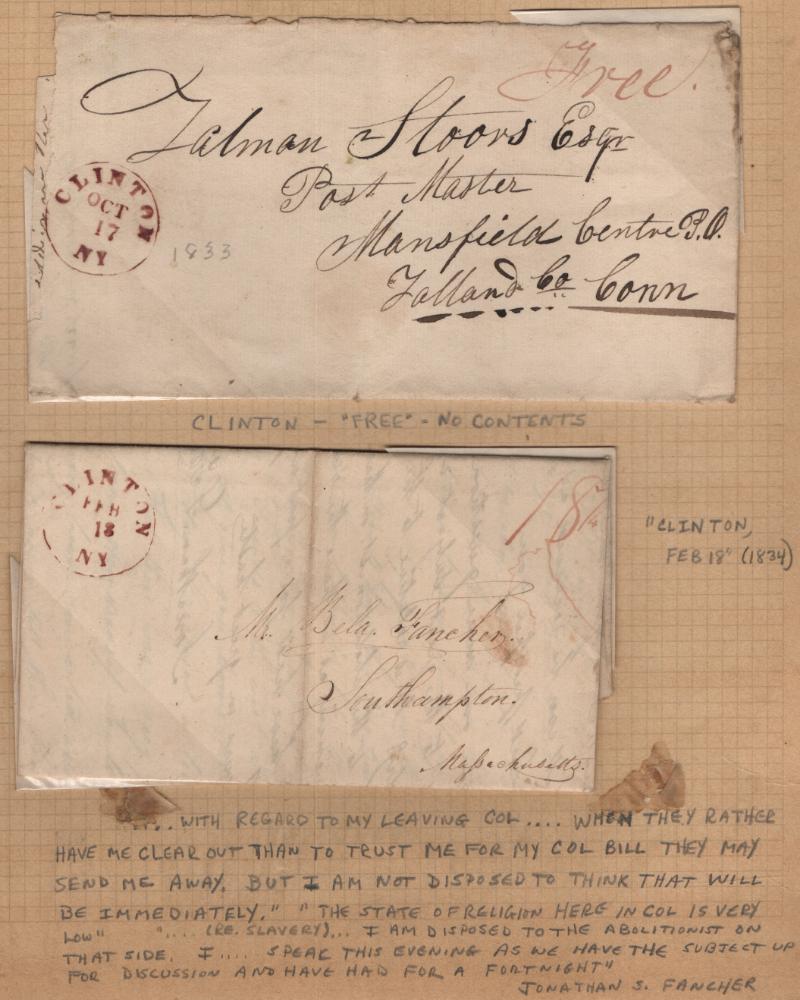 Free.
Zalman Stoors Esqr
Post Master
Mansfield Centre P.O.
Tolland Co Conn
CLINTON
OCT
17
NY
1833
CLINTON - "FREE" - NO CONTENTS
CLINTON
FEB
18
NY
18¾
Mr. Bela. Fancher.
Southampton.
Massachusetts.
"CLINTON,
FEB 18" (1834)
".... WITH REGARD TO MY LEAVING COL .... WHEN THEY RATHER
HAVE ME CLEAR OUT THAN TO TRUST ME FOR MY COL BILL THEY MAY
SEND ME AWAY. BUT I AM NOT DISPOSED TO THINK THAT WILL
BE IMMEDIATELY." "THE STATE OF RELIGION HERE IN COL IS VERY
LOW" ".... (RE. SLAVERY)... I AM DISPOSED TO THE ABOLITIONIST ON
THAT SIDE. I .... SPEAK THIS EVENING AS WE HAVE THE SUBJECT UP
FOR DISCUSSION AND HAVE HAD FOR A FORTNIGHT"
JONATHAN S. FANCHER